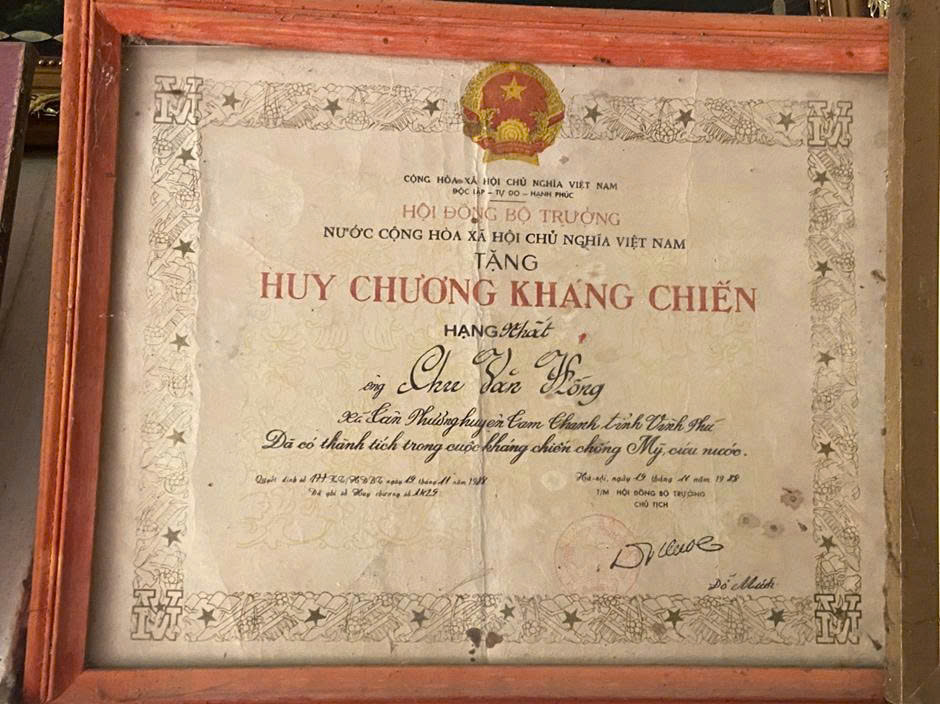 CỘNG HÒA XÃ HỘI CHỦ NGHĨA VIỆT NAM
ĐỘC LẬP - TỰ DO - HẠNH PHÚC
HỘI ĐỒNG BỘ TRƯỞNG
NƯỚC CỘNG HÒA XÃ HỘI CHỦ NGHĨA VIỆT NAM
TẶNG
HUY CHƯƠNG KHÁNG CHIẾN
HẠNG Nhất
ông Chu Văn Hồng
Xã Tân Phương huyện Tam Thanh tỉnh Vĩnh Phú
Đã có thành tích trong cuộc kháng chiến chống Mỹ, cứu nước.
Quyết định số KT/HĐBT ngày 19 tháng 11 năm 1988
Đã ghi sổ Huy chương số
Hà-nội, ngày 19 tháng 11 năm 1988
T/M HỘI ĐỒNG BỘ TRƯỞNG
CHỦ TỊCH
Đỗ Mười